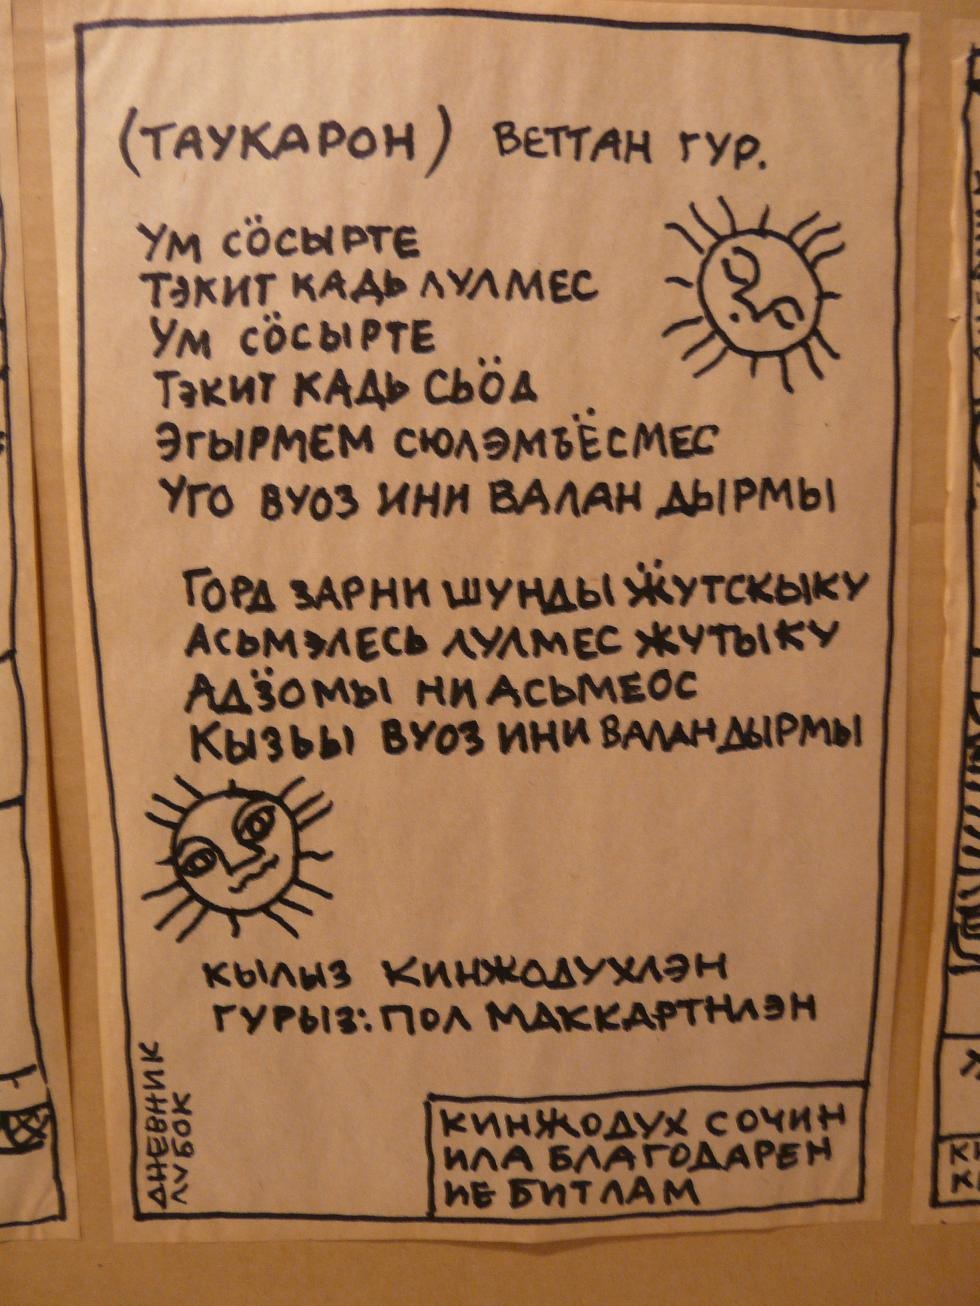 (ТАУКАРОН) ВЕТТАН ГУР.
УМ СӦСЫРТЕ
ТЭКИТ КАДЬ ЛУЛМЕС
УМ СӦСЫРТЕ
ТЭКИТ КАДЬ СЬӦД
ЭГЫРМЕМ СЮЛЭМЪЁСМЕС
УГО ВУОЗ ИНИ ВАЛАН ДЫРМЫ
ГОРД ЗАРНИ ШУНДЫ ӜУТСКЫКУ
АСЬМЭЛЕСЬ ЛУЛМЕС ЖУТЫКУ
АДӞОМЫ НИ АСЬМЕОС
КЫЗЬЫ ВУОЗ ИНИ ВАЛАН ДЫРМЫ
КЫЛЫЗ КИНЖОДУХЛЭН
ГУРЫЗ: ПОЛ МАККАРТНЛЭН
ДНЕВНИК
ЛУБОК
КИНЖОДУХ СОЧИН
ИЛА БЛАГОДАРЕН
ИЕ БИТЛАМ